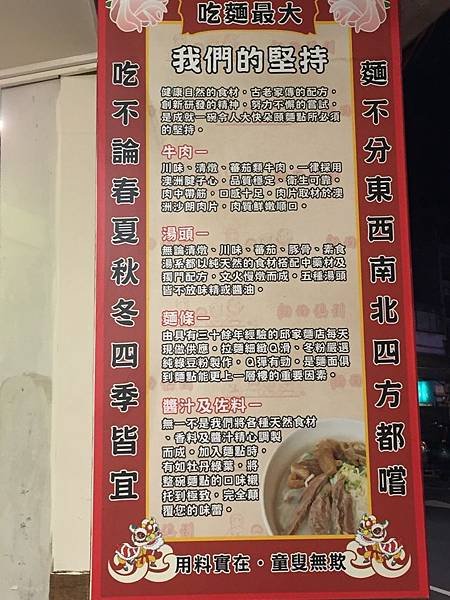 吃麵最大
麵不分東西南北四方都嚐
吃不論春夏秋冬四季皆宜
我們的堅持
健康自然的食材，古老家傳的配方，
創新研發的精神，努力不懈的嘗試，
是成就一碗令人大快朵頤麵點所必須
的堅持。
牛肉－
川味、清燉、蕃茄類牛肉，一律採用
澳洲腱子心，品質穩定、衛生可靠。
肉中帶筋，口感十足。肉片取材於澳
洲沙朗肉片，肉質鮮嫩順口。
湯頭－
無論清燉、川味、蕃茄、豚骨、素食
湯系都以純天然的食材搭配中藥材及
獨門配方，文火慢燉而成。五種湯頭
皆不放味精或醬油。
麵條－
由具有三十餘年經驗的邱家麵店每天
現做供應。拉麵細緻Q滑、冬粉嚴選
純綠豆粉製作。Q彈有勁，是麵面俱
到麵點能更上一層樓的重要因素。
醬汁及佐料－
無一不是我們將各種天然食材
、香料及醬汁精心調製
而成。加入麵點時，
有如牡丹綠葉，將
整碗麵點的口味襯
托到極致，完全顛
覆您的味蕾。
用料實在·童叟無欺